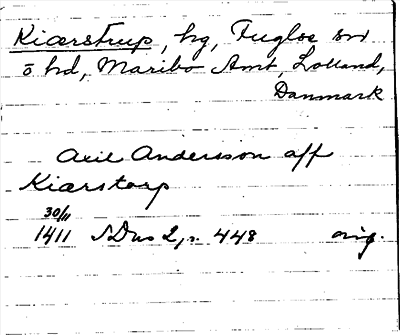 Kiærstrup, hg, Fuglse sn
ö hd, Maribo Amt, Lolland,
Danmark
Axil Andersson aff
Kiærstorp
30/11
1411 SDns 2, n. 448 orig.